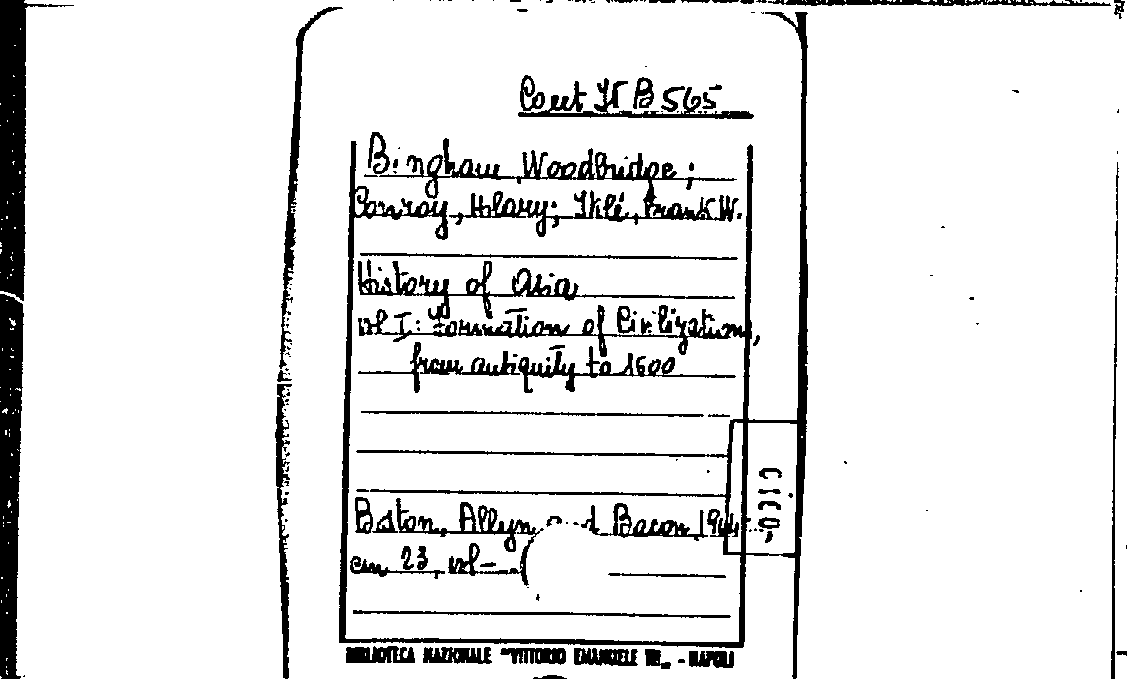 B 565
Bingham, Woodbridge;
Conroy, Hilary; Iklé, Frank W.
History of Asia
vol I: Formation of Civilizations,
from antiquity to 1600
Boston, Allyn and Bacon
cm 23, vol
BIBLIOTECA NAZIONALE "VITTORIO EMANUELE III„ - NAPOLI